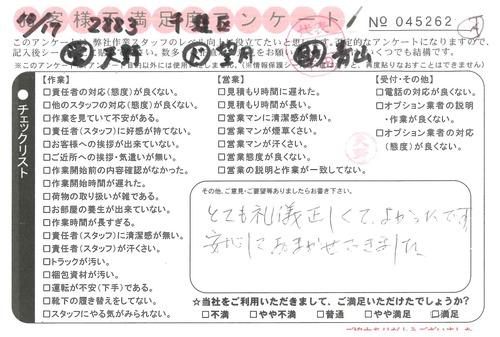 お客様満足度アンケート!
10/17 2883 千種区
№ 045262
このアンケートは、弊社作業スタッフのレベル向上に役立てたいと思
記入後シー
いくつでも結構です。
※このアンケートは
【作業】
□責任者の対応(態度)が良くない。
□他のスタッフの対応(態度)が良くない。
□作業を見ていて不安がある。
□責任者(スタッフ)に好感が持てない。
□お客様への挨拶が出来ていない。
□ご近所への挨拶・気遣いが無い。
□作業開始前の内容確認がなかった。
□作業開始時間が遅れた。
□荷物の取り扱いが雑である。
□お部屋の養生が出来ていない。
□作業時間が長すぎる。
□責任者(スタッフ)に清潔感が無い。
□責任者(スタッフ)が汗くさい。
□トラックが汚い。
□梱包資材が汚い。
□運転が不安(下手)である。
□靴下の履き替えをしてない。
□スタッフにやる気がみられない。
チェックリスト
【営業】
□見積もり時間に遅れた。
□見積もり時間が長い。
□営業マンに清潔感が無い。
□営業マンが煙草くさい。
□営業マンが汗くさい。
□営業態度が良くない。
□営業の説明と作業が一致してない。
【受付・その他】
□電話の対応が良くない。
□オプション業者の説明
・作業が良くない。
□オプション業者の対応
(態度)が良くない。
その他、ご意見・ご要望等ありましたらお書き下さい。
とても礼儀正しくて、よかったです
安心しておまかせできました
☆当社をご利用いただきまして、ご満足いただけたでしょうか?
□不満 □やや不満 □普通 □やや満足 □満足